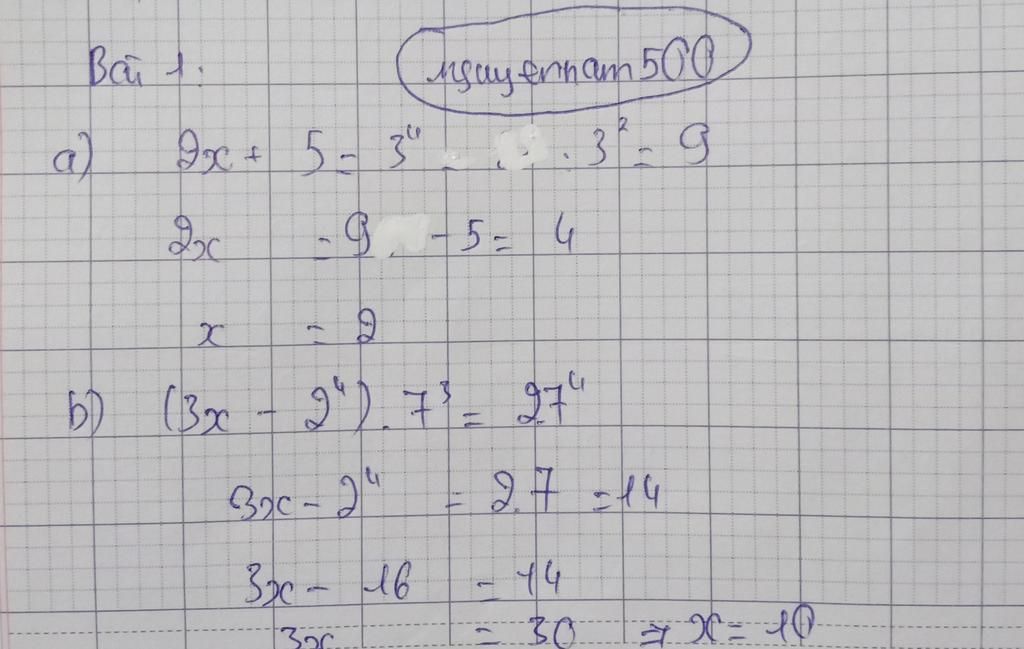 Bài 1: nguyennam500
a) 2x + 5 = 3⁴ . 3² = 9
2x = 9 - 5 = 4
x = 2
b) (3x - 2⁴) . 7³ = 2.7⁴
3x - 2⁴ = 2.7 = 14
3x - 16 = 14
3x = 30 ⇒ x = 10